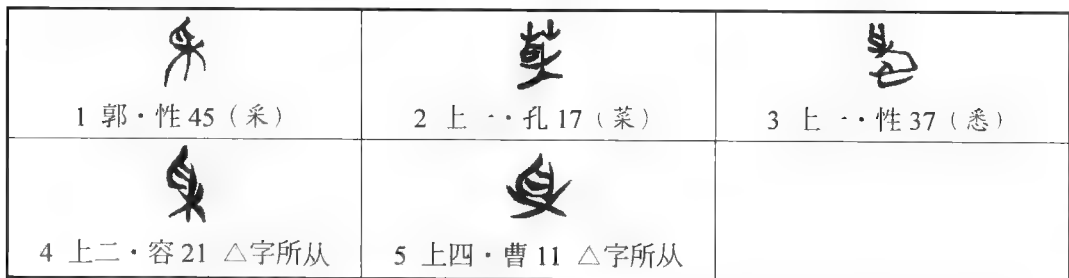 1 郭·性45（采）
2 上一·孔17（菜）
3 上一·性37（悉）
4 上二·容21 △字所从
5 上四·曹11 △字所从